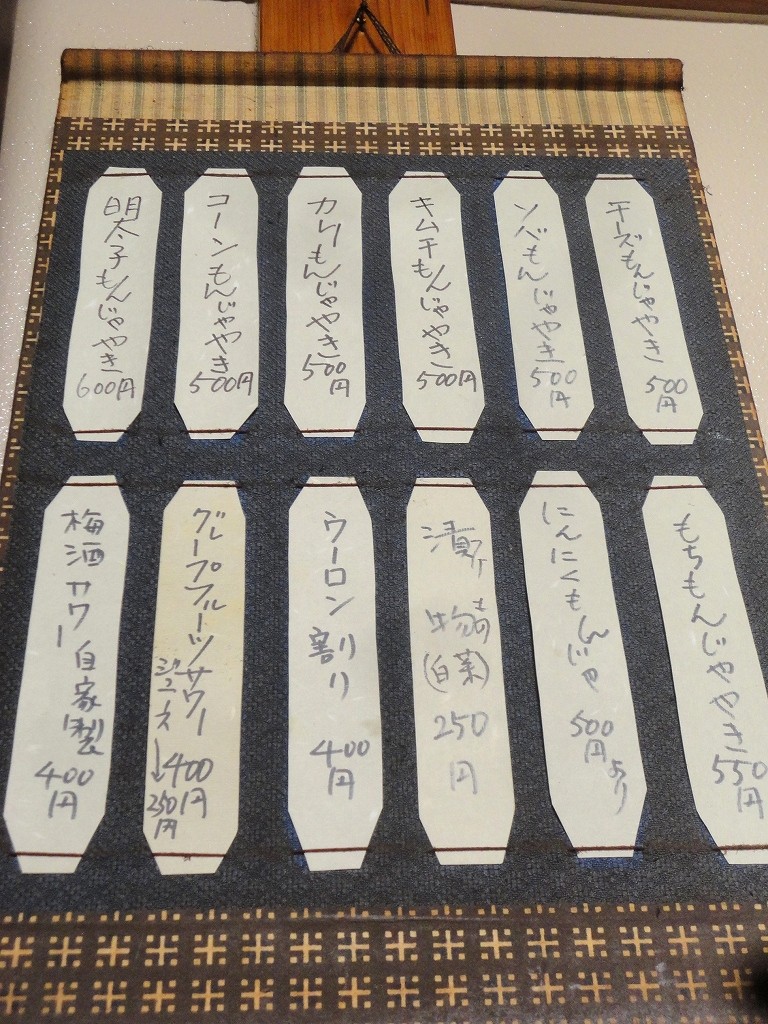 チーズもんじゃやき
500
円
ソバもんじゃやき
500
円
キムチもんじゃやき
500円
カリーもんじゃやき
500
円
コーンもんじゃやき
500円
明太子もんじゃやき
600円
もちもんじゃやき
550
円
にんにくもんじゃ
500
円
より
漬物
(白菜)
250
円
ウーロン割り
400
円
グレープフルーツサワー
400
円
ジュース→
250
円
梅酒サワー自家製
400
円